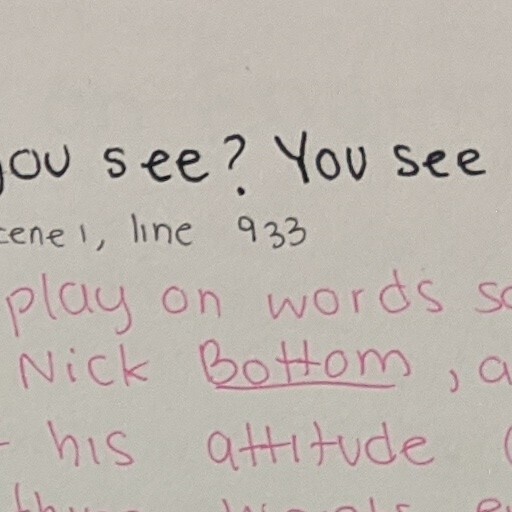 you see? You see
scene 1, line 933
play on words
Nick Bottom, a
his attitude (